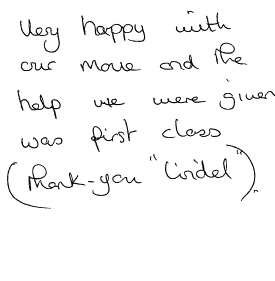 Very happy with
our move and the
help we were given
was first class
(Thank-you "Lindel").